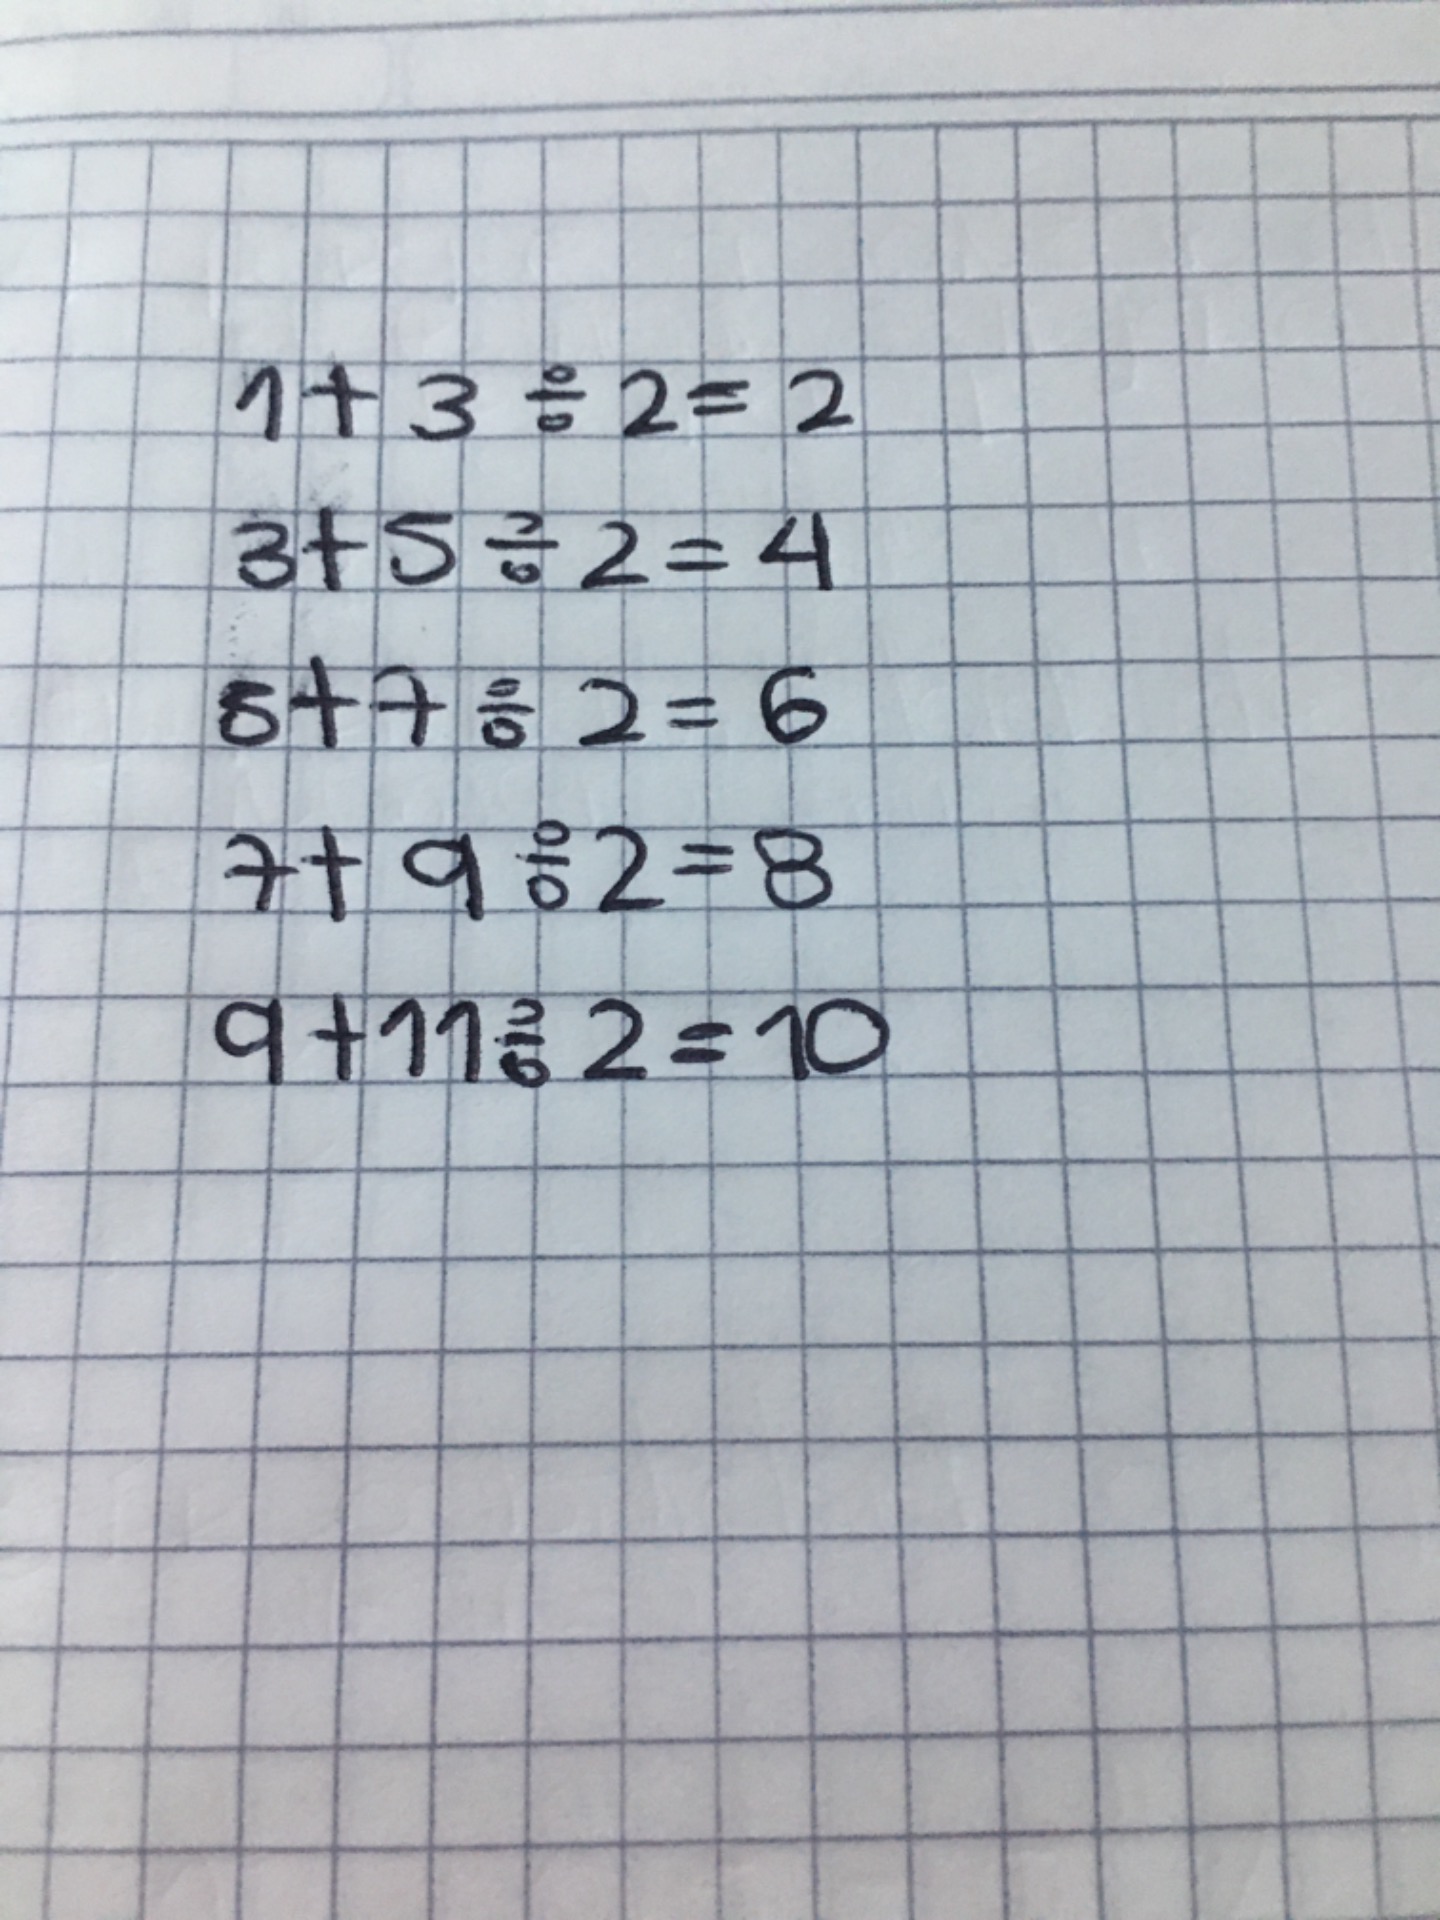 1 + 3 ÷ 2 = 2
3 + 5 ÷ 2 = 4
5 + 7 ÷ 2 = 6
7 + 9 ÷ 2 = 8
9 + 11 ÷ 2 = 10